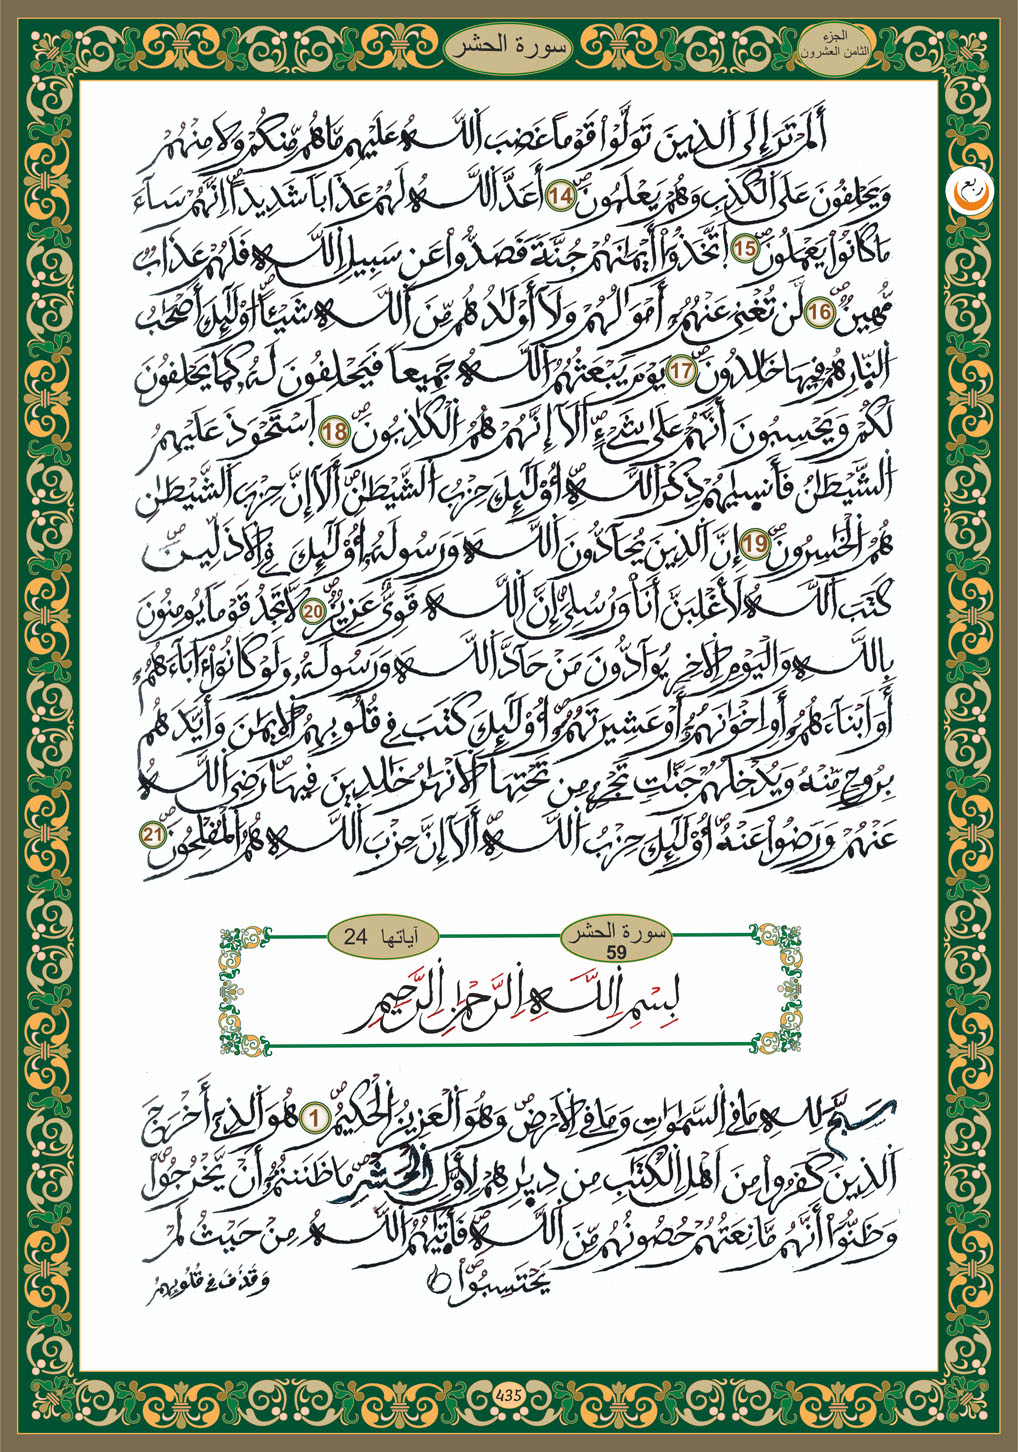 سورة الحشر
الجزء
الثامن العشرون
أَلَمْ تَرَ إِلَى ٱلذِينَ تَوَلَّوْاْ قَوْماً غَضِبَ ٱللَّهُ عَلَيْهِم مَّا هُم مِّنكُمْ وَلَا مِنْهُمْ
ربع
وَيَحْلِفُونَ عَلَى ٱلْكَذِبِ وَهُمْ يَعْلَمُونَ 14 أَعَدَّ ٱللَّهُ لَهُمْ عَذَاباً شَدِيداً اِنَّهُمْ سَآءَ
مَا كَانُواْ يَعْمَلُونَ 15 اَتَّخَذُوٓاْ أَيْمَٰنَهُمْ جُنَّةً فَصَدُّواْ عَن سَبِيلِ ٱللَّهِ فَلَهُمْ عَذَابٌ
مُّهِينٌ 16 لَّن تُغْنِيَ عَنْهُمُۥٓ أَمْوَٰلُهُمْ وَلَآ أَوْلَٰدُهُم مِّنَ ٱللَّهِ شَيْـٔاً اوْلَٰٓئِكَ أَصْحَٰبُ
ٱلنّ۪ارِ هُمْ فِيهَا خَٰلِدُونَ 17 يَوْمَ يَبْعَثُهُمُ ٱللَّهُ جَمِيعاً فَيَحْلِفُونَ لَهُۥ كَمَا يَحْلِفُونَ
لَكُمْ وَيَحْسِبُونَ أَنَّهُمْ عَلَىٰ شَےْءٍ اَلَآ إِنَّهُمْ هُمُ ٱلْكَٰذِبُونَ 18 اَسْتَحْوَذَ عَلَيْهِمُ
ٱلشَّيْطَٰنُ فَأَنس۪يٰهُمْ ذِكْرَ ٱللَّهِ أُوْلَٰٓئِكَ حِزْبُ ٱلشَّيْطَٰنِ أَلَآ إِنَّ حِزْبَ ٱلشَّيْطَٰنِ
هُمُ ٱلْخَٰسِرُونَ 19 إِنَّ ٱلذِينَ يُحَآدُّونَ ٱللَّهَ وَرَسُولَهُۥٓ أُوْلَٰٓئِكَ فِے ٱلَاذَلِّينَ
كَتَبَ ٱللَّهُ لَأَغْلِبَنَّ أَنَا۠ وَرُسُلِيَ إِنَّ ٱللَّهَ قَوِيٌّ عَزِيزٌ 20 لَّا تَجِدُ قَوْماً يُومِنُونَ
بِاللَّهِ وَالْيَوْمِ ٱلَاخِرِ يُوَآدُّونَ مَنْ حَآدَّ ٱللَّهَ وَرَسُولَهُۥ وَلَوْ كَانُوٓاْ ءَابَآءَهُمُۥٓ
أَوَ اَبْنَآءَهُمُۥٓ أَوِ اِخْوَٰنَهُمُۥٓ أَوْ عَشِيرَتَهُمُۥٓ أُوْلَٰٓئِكَ كَتَبَ فِے قُلُوبِهِمُ ٱلِايمَٰنَ وَأَيَّدَهُم
بِرُوحٍ مِّنْهُ وَيُدْخِلُهُمْ جَنَّٰتٍ تَجْرِے مِن تَحْتِهَا ٱلَانْهَٰرُ خَٰلِدِينَ فِيهَا رَضِيَ ٱللَّهُ
عَنْهُمْ وَرَضُواْ عَنْهُ أُوْلَٰٓئِكَ حِزْبُ ٱللَّهِ أَلَآ إِنَّ حِزْبَ ٱللَّهِ هُمُ ٱلْمُفْلِحُونَ 21
سورة الحشر آياتها 24
59
بِسْمِ ٱللَّهِ ٱلرَّحْمَٰنِ ٱلرَّحِيمِ
سَبَّحَ لِلهِ مَا فِے ٱلسَّمَٰوَٰتِ وَمَا فِے ٱلَارْضِ وَهُوَ ٱلْعَزِيزُ ٱلْحَكِيمُ 1 هُوَ ٱلذِےٓ أَخْرَجَ
ٱلذِينَ كَفَرُواْ مِنَ اَهْلِ ٱلْكِتَٰبِ مِن دِيٰ۪رِهِمْ لِأَوَّلِ ٱلْحَشْرِ مَا ظَنَنتُمُۥٓ أَنْ يَّخْرُجُواْ
وَظَنُّوٓاْ أَنَّهُم مَّانِعَتُهُمْ حُصُونُهُم مِّنَ ٱللَّهِ فَأَت۪يٰهُمُ ٱللَّهُ مِنْ حَيْثُ لَمْ
يَحْتَسِبُواْ وَقَذَفَ فِے قُلُوبِهِمُ
435